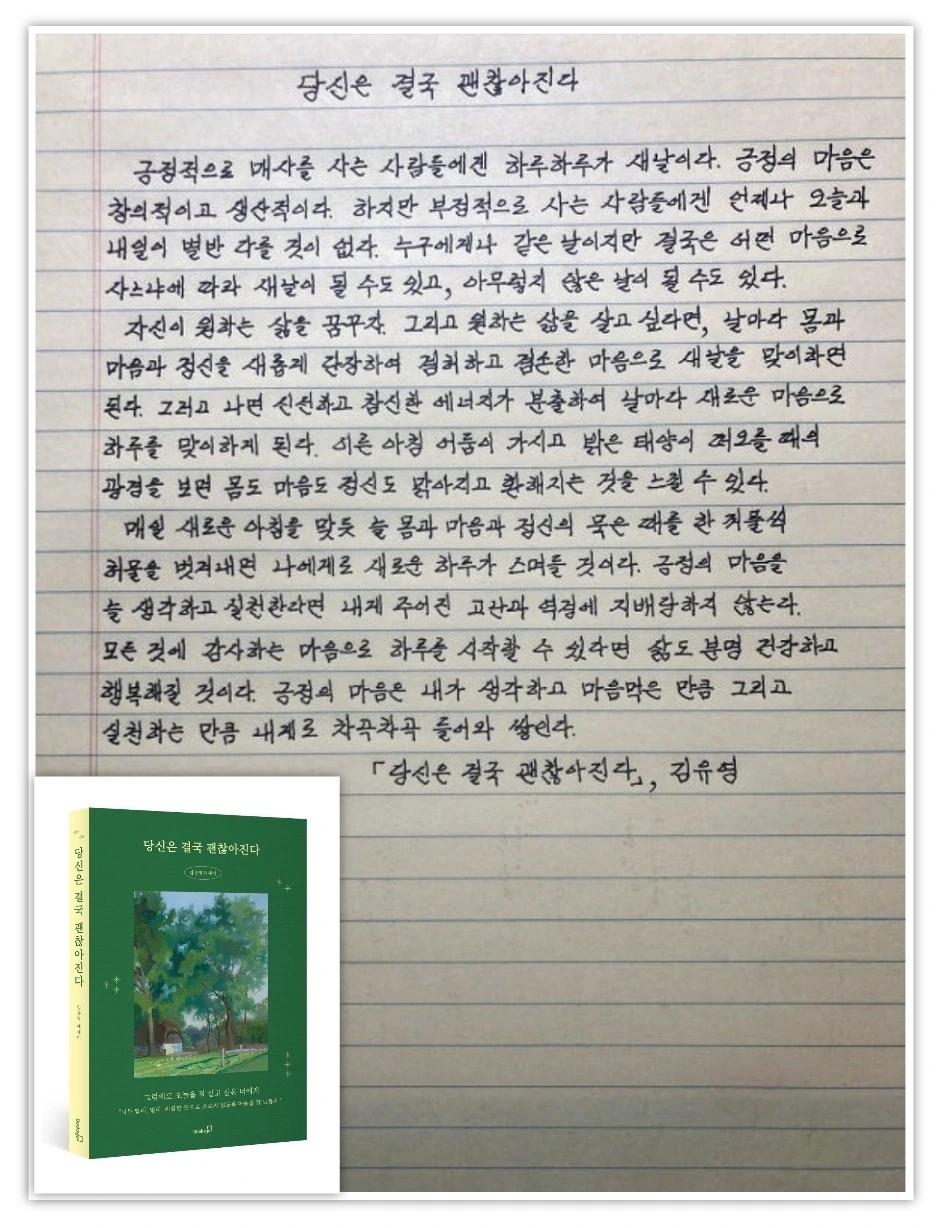 당신은 결국 괜찮아진다
긍정적으로 매사를 사는 사람들에겐 하루하루가 새날이다. 긍정의 마음은
창의적이고 생산적이다. 하지만 부정적으로 사는 사람들에겐 언제나 오늘과
내일이 별반 다를 것이 없다. 누구에게나 같은 날이지만 결국은 어떤 마음으로
사느냐에 따라 새날이 될 수도 있고, 아무렇지 않은 날이 될 수도 있다.
자신이 원하는 삶을 꿈꾸자. 그리고 원하는 삶을 살고 싶다면, 날마다 몸과
마음과 정신을 새롭게 단장하여 겸허하고 겸손한 마음으로 새날을 맞이하면
된다. 그러고 나면 신선하고 참신한 에너지가 분출하여 날마다 새로운 마음으로
하루를 맞이하게 된다. 이른 아침 어둠이 가시고 밝은 태양이 떠오를 때의
광경을 보면 몸도 마음도 정신도 맑아지고 환해지는 것을 느낄 수 있다.
매일 새로운 아침을 맞듯 늘 몸과 마음과 정신의 묵은 때를 한 꺼풀씩
허물을 벗겨내면 나에게로 새로운 하루가 스며들 것이다. 긍정의 마음을
늘 생각하고 실천한다면 내게 주어진 고난과 역경에 지배당하지 않는다.
모든 것에 감사하는 마음으로 하루를 시작할 수 있다면 삶도 분명 건강하고
행복해질 것이다. 긍정의 마음은 내가 생각하고 마음먹은 만큼 그리고
실천하는 만큼 내게로 차곡차곡 들어와 쌓인다.
「당신은 결국 괜찮아진다」, 김유영
당신은 결국 괜찮아진다
김유영 에세이
당신은 결국 괜찮아진다
그럼에도 오늘을 잘 살고 싶은 너에게